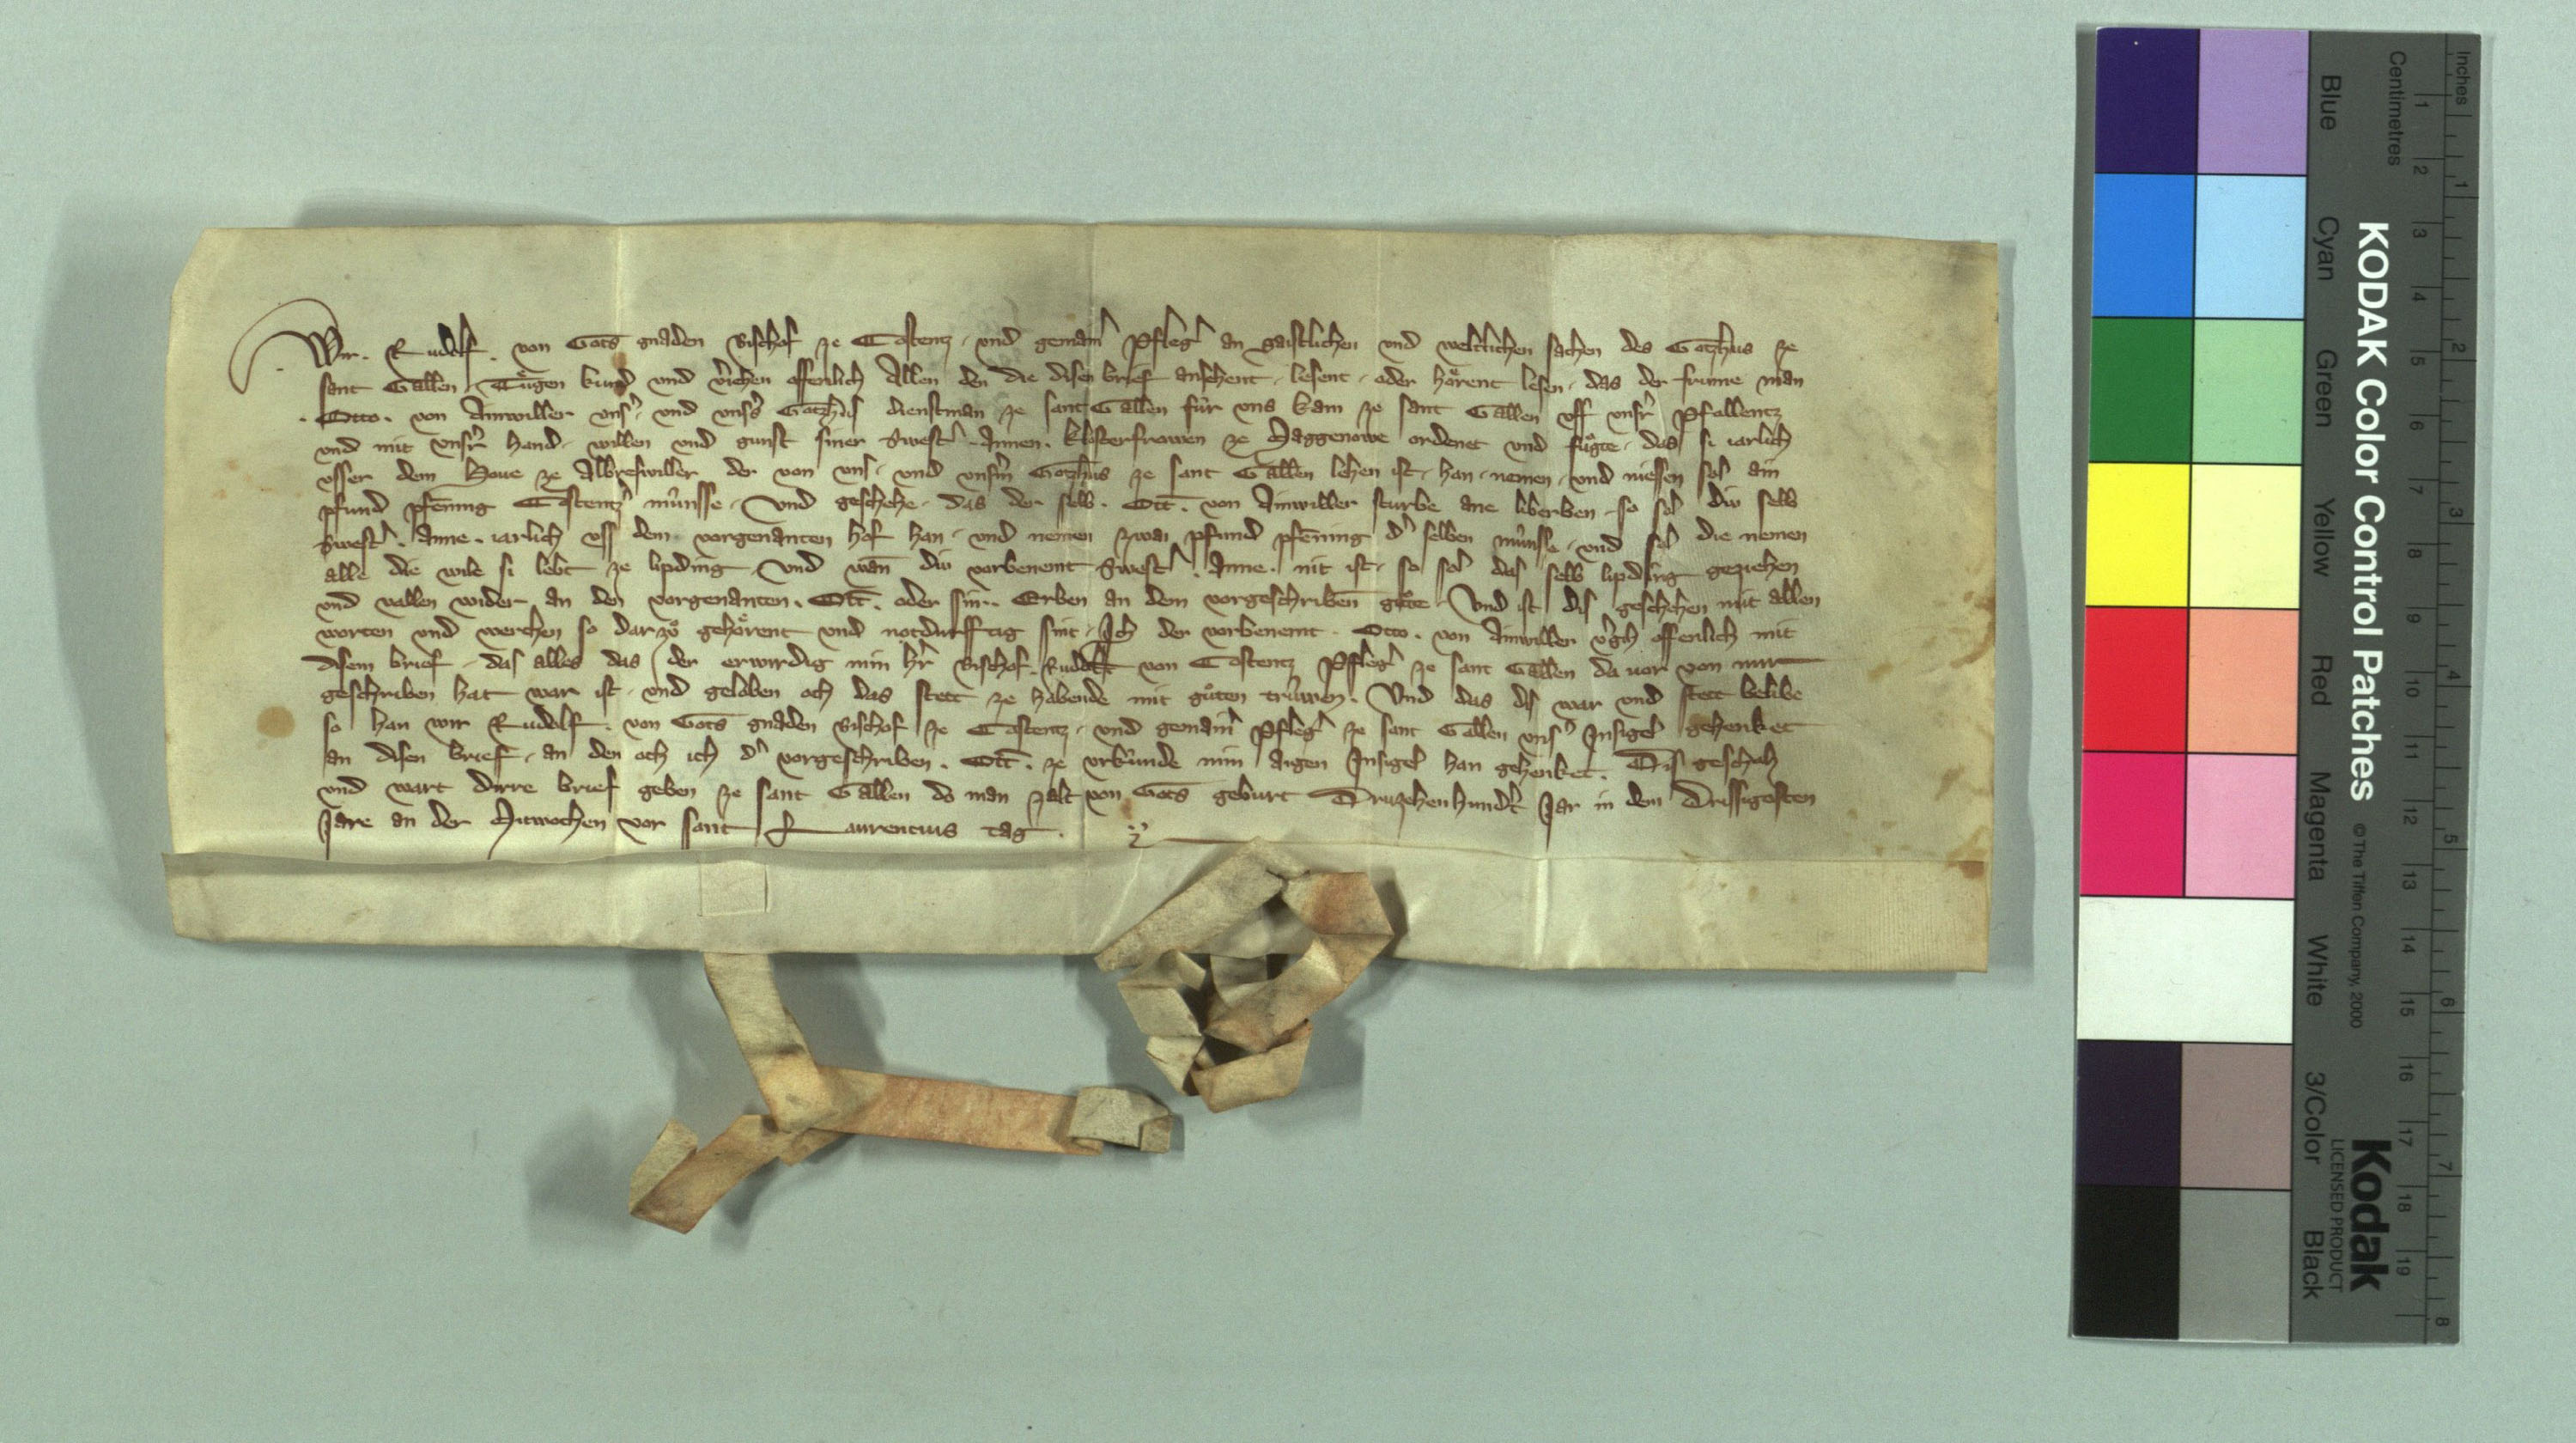 Wir . Rudolf . von Gots gnaden Bischof ze Costentz . und gemainr Pfleger an gaistlichen und weltlichen sachen des Gotzhus ze
sant Gallen . Tuͤgen kund und veriehen offenlich Allen den die disen brief ansehent . lesent . oder hoͤrent lesen . das der frume man
. Otto . von Ainwiller unser . und unsers Gotzhus dienstman ze sant Gallen fuͥr uns kam ze sant Gallen uff unser Pfallentz
und mit unser hand . willen und gunst siner Swester . Annen . klosterfrowen ze Maggenowe ordenet und fuͦgte . das si iarlich
usser dem Hove ze Albreswiller der von uns . und unserm Gotzhus ze sant Gallen lehen ist . han . nemen . und niessen sol ain
pfund pfenning Costentzer muͥnsse . Und geschehe . das der selb . Ott . von Ainwiller sturbe ane liberben . so sol diu selb
Swester . Anne . iarlich uss dem vorgenanten hof han . und nemen zwai pfund pfenning der selben muͥnsse . und sol die nemen
alle die wile si lebt ze lipding . Und wan diu vorbenemt Swester . Anne . nit ist . so sol das selb lipding geziehen
und vallen wider an den vorgenanten . Ott . oder sin . Erben an dem vorgeschriben guͦte . Und ist dis geschehen mit allen
worten und werchen so dar zuͦ gehoͤrent und notdurfftig sint . Ich der vorbenemt . Otto . von Ainwiller vergich offenlich mit
disem brief . das alles das der erwirdig min her Bischof . Rudolf von Costentz Pfleger ze sant Gallen da vor von mir
geschriben hat war ist . und geloben och das stett ze habende mit guͦten truͥwen . Und das dis war und stett belibe
so han wir Rudolf . von Gots gnaden Bischof ze Costentz . und gemainr Pfleger ze sant Gallen unser Insigel gehenket
an disen brief . an den och ich der vorgeschriben . Ott . ze urkuͥnde min aigen Insigel han gehenket . Dis geschach
und wart dirre brief geben ze sant Gallen do man zalt von Gots geburt Druzehenhundert Jar in dem Drissigosten
Jare an der Mitwochen vor sant Laurencius tag .
Inches 1 2 3 4 5 6 7 8
Centimetres 1 2 3 4 5 6 7 8 9 10 11 12 13 14 15 16 17 18 19
KODAK Color Control Patches © The Tiffen Company, 2000 Kodak
LICENSED PRODUCT
Blue Cyan Green Yellow Red Magenta White 3/Color Black